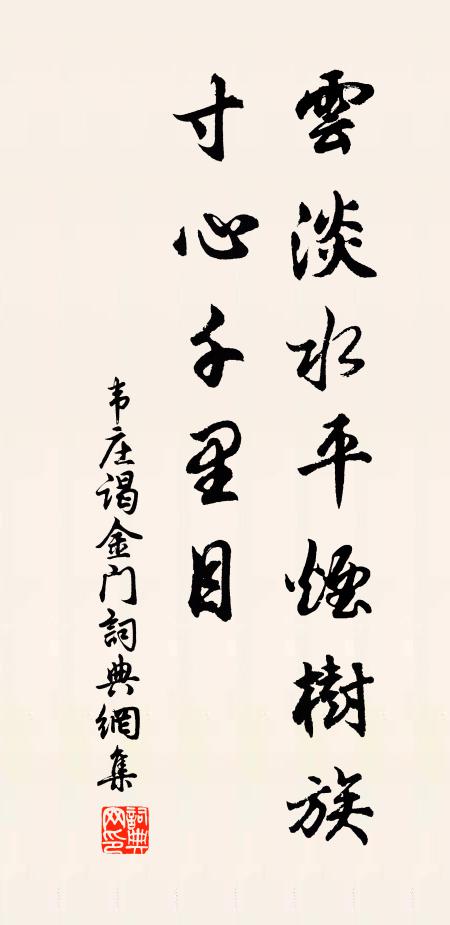 雲淡水平煙樹族
寸心千里目
韦庄谒金门詞典網集
詞典网印